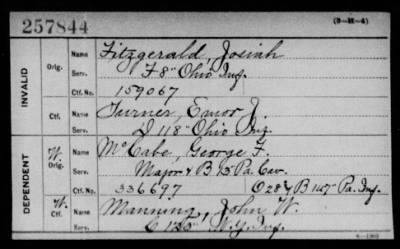 257844
(3-M-4)
INVALID
Orig.
Name Fitzgerald, Josiah
Serv. F 8" Ohio Inf.
Ctf. No. 159067
Ctf.
Name Turner, Emor J.
Serv. I 118 Ohio Inf.
DEPENDENT
W. Orig.
Name McCabe, George F.
Serv. Major & B 13 Pa. Cav.
Ctf. No. 336697 Pa. Inf.
W. Ctf.
Name Manning, John W.
Serv. N.Y. Inf.